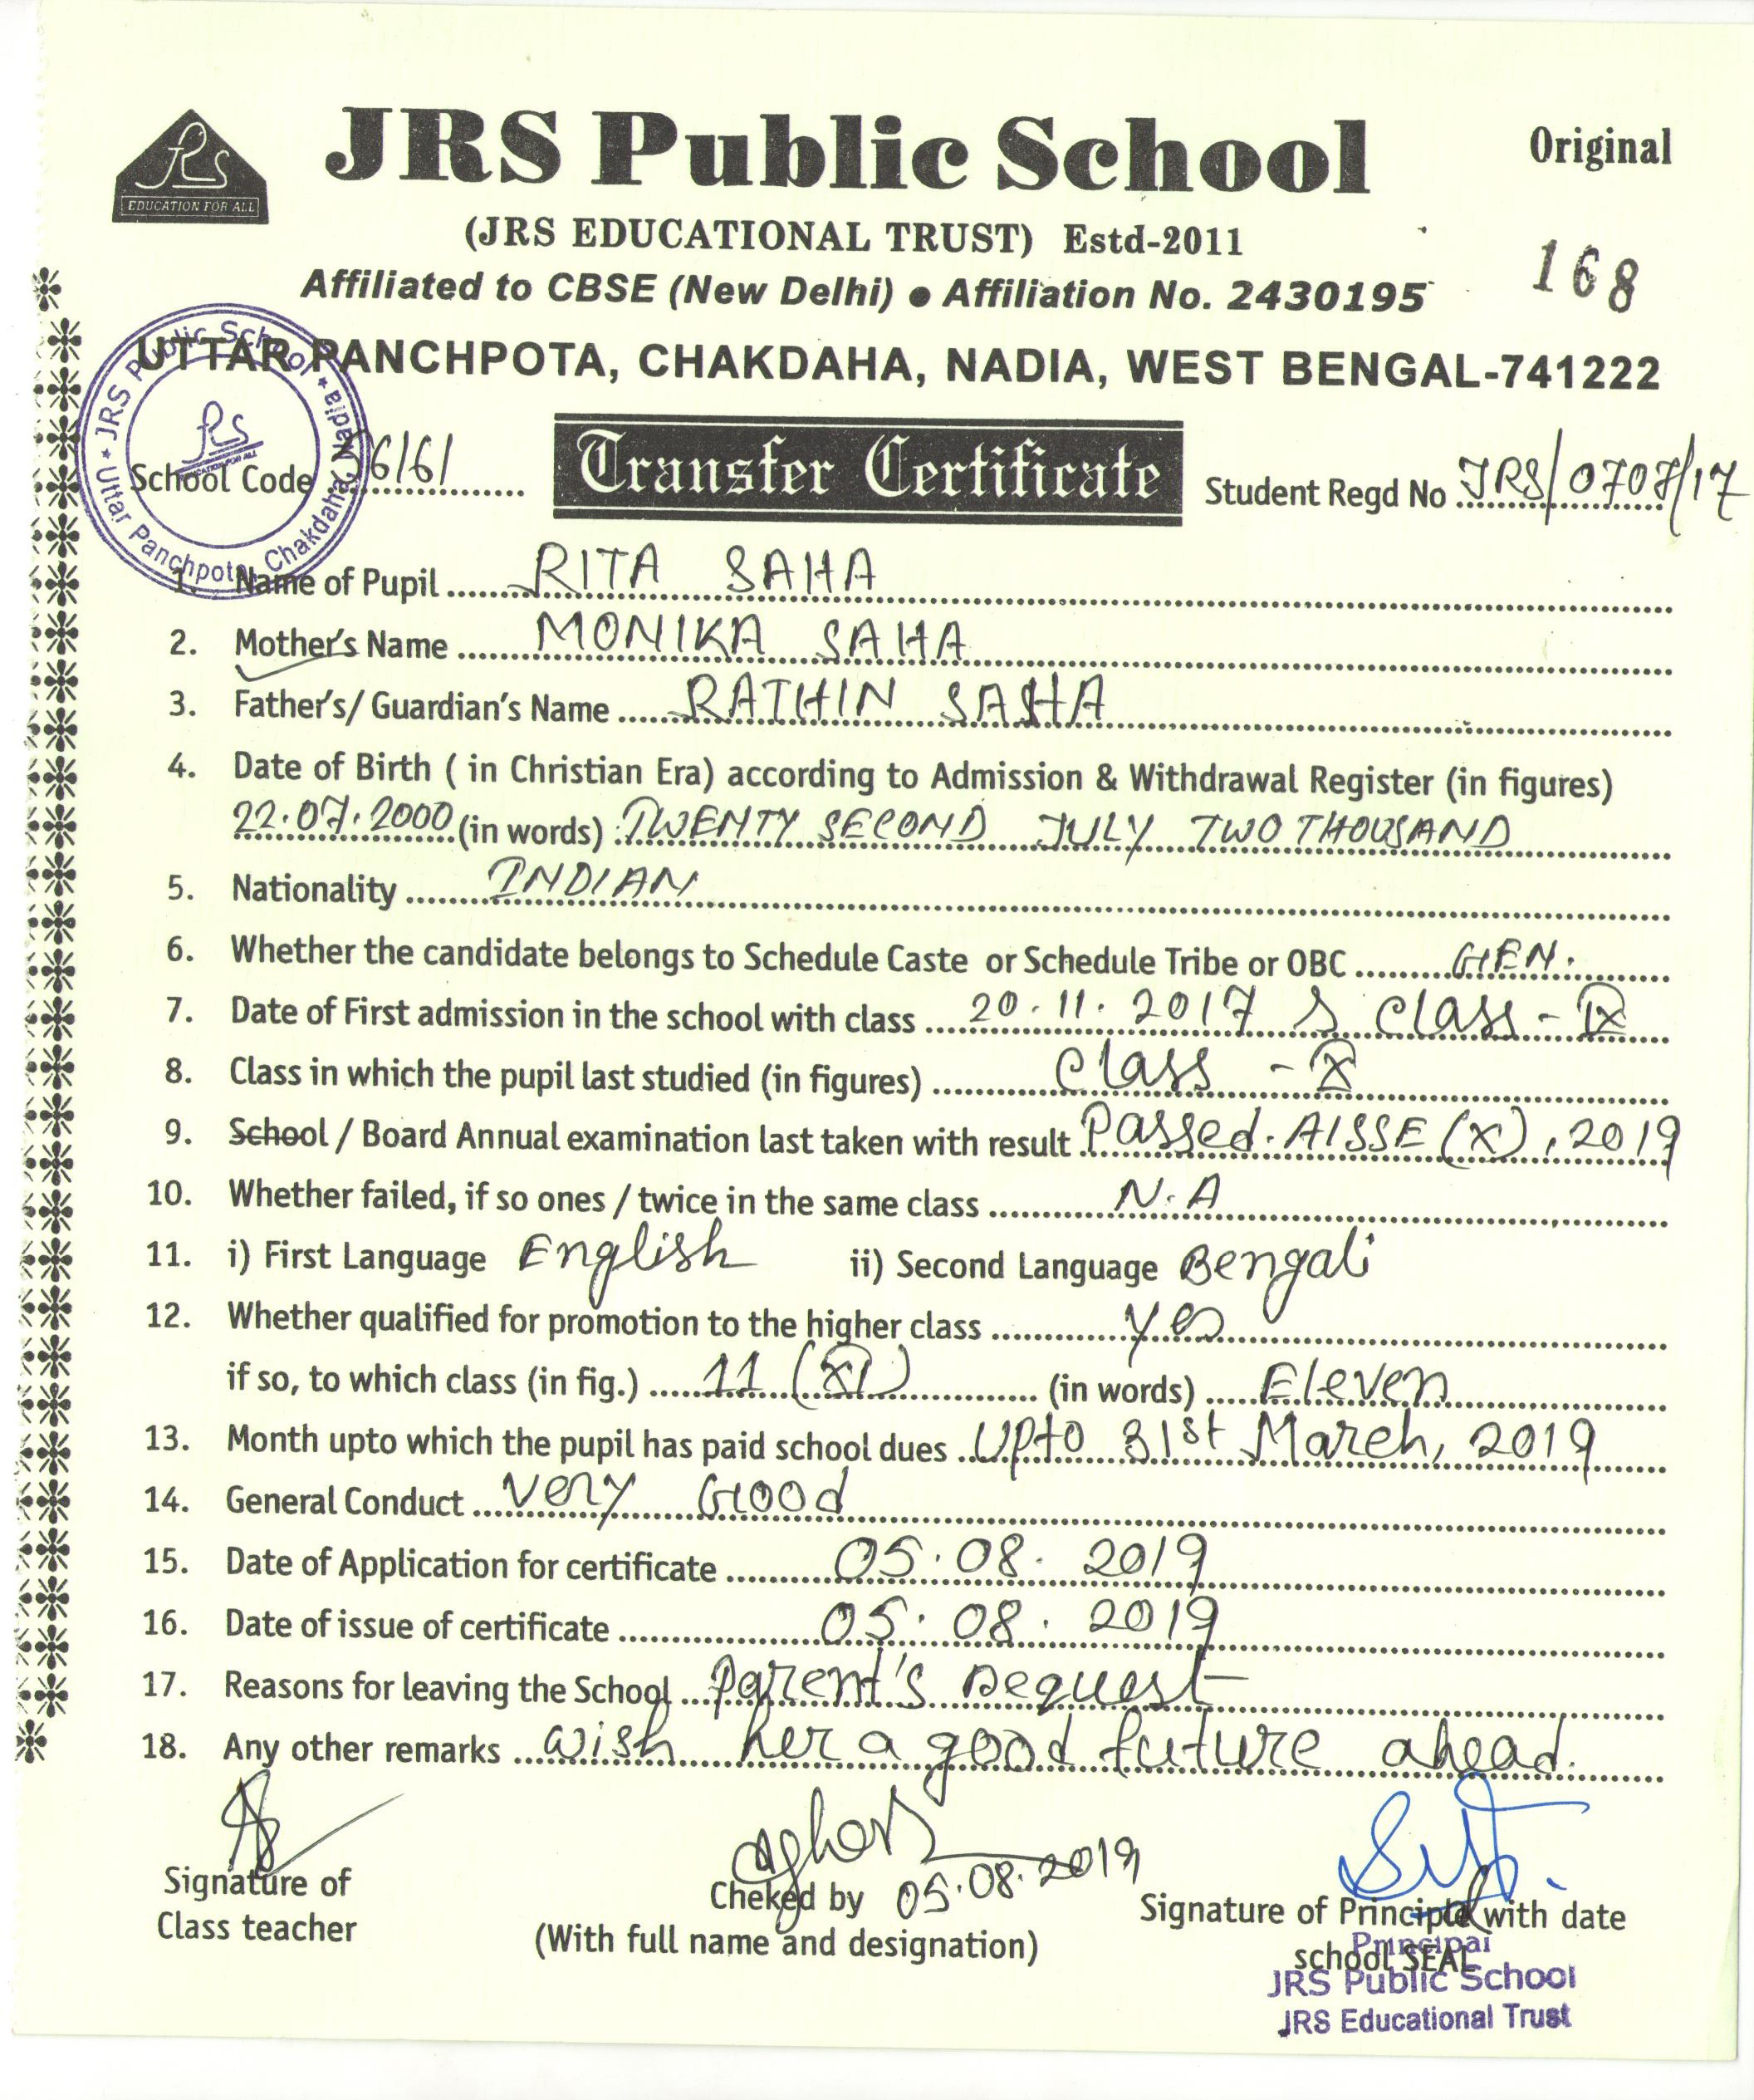 JRS Public School
Original
EDUCATION FOR ALL
(JRS EDUCATIONAL TRUST) Estd-2011
168
Affiliated to CBSE (New Delhi) ● Affiliation No. 2430195
UTTAR PANCHPOTA, CHAKDAHA, NADIA, WEST BENGAL-741222
JRS Public School * Uttar Panchpota, Chakdaha, Nadia *
School Code
Transfer Certificate
Student Regd No JRS/0707/17
1. Name of Pupil RITA SAHA
2. Mother's Name MONIKA SAHA
3. Father's/ Guardian's Name RATHIN SAHA
4. Date of Birth ( in Christian Era) according to Admission & Withdrawal Register (in figures)
22.07.2000 (in words) TWENTY SECOND JULY TWO THOUSAND
5. Nationality INDIAN
6. Whether the candidate belongs to Schedule Caste or Schedule Tribe or OBC GEN.
7. Date of First admission in the school with class 20.11.2017 Class - IX
8. Class in which the pupil last studied (in figures) Class - X
9. School / Board Annual examination last taken with result Passed. AISSE (X), 2019
10. Whether failed, if so ones / twice in the same class N.A
11. i) First Language English ii) Second Language Bengali
12. Whether qualified for promotion to the higher class yes
if so, to which class (in fig.) 11 (XI) (in words) Eleven
13. Month upto which the pupil has paid school dues Upto 31st March, 2019
14. General Conduct Very Good
15. Date of Application for certificate 05.08.2019
16. Date of issue of certificate 05.08.2019
17. Reasons for leaving the School Parent's Request
18. Any other remarks Wish her a good future ahead.
Signature of
Class teacher
Cheked by 05.08.2019
(With full name and designation)
Signature of Principal with date
school SEAL
Principal
JRS Public School
JRS Educational Trust